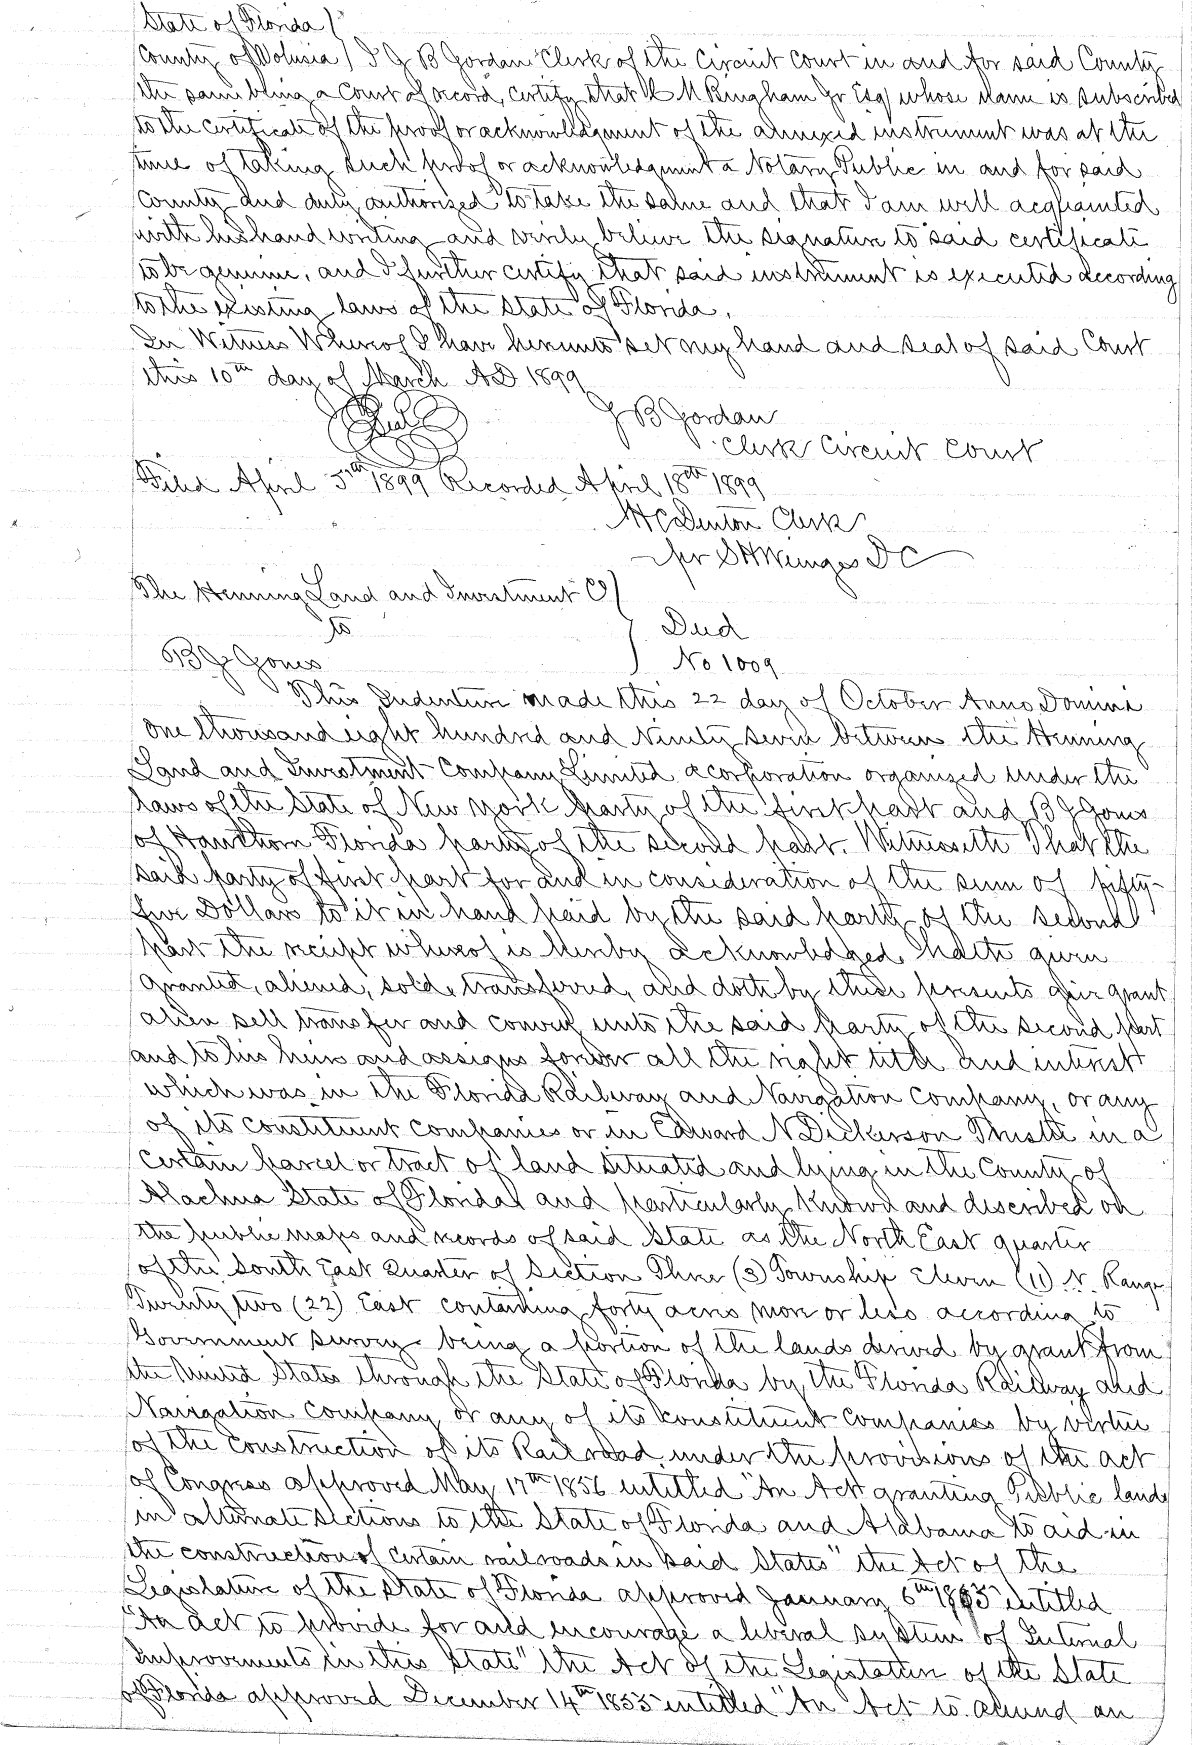 State of Florida }
County of Volusia } I J B Jordan Clerk of the Circuit Court in and for said County
the same being a Court of record, certify that M Bingham Jr Esq whose name is subscribed
to the certificate of the proof or acknowledgment of the annexed instrument was at the
time of taking such proof or acknowledgment a Notary Public in and for said
County and duly authorized to take the same and that I am well acquainted
with his hand writing and verily believe the signature to said certificate
to be genuine, and I further certify that said instrument is executed according
to the existing laws of the State of Florida.
In Witness Whereof I have hereunto set my hand and seal of said Court
this 10th day of March AD 1899
Seal J B Jordan
Clerk Circuit Court
Filed April 5th 1899 Recorded April 18th 1899
H C Denton Clerk
per S H Wienges D C
The Henning Land and Investment Co }
to } Deed
B J Jones } No 1009
This Indenture made this 22 day of October Anno Domini
One thousand eight hundred and Ninety seven between the Henning
Land and Investment Company Limited a corporation organized under the
laws of the State of New York party of the first part and B J Jones
of Hawthorn Florida party of the second part. Witnesseth That the
said party of first part for and in consideration of the sum of fifty-
five Dollars to it in hand paid by the said party of the second
part the receipt whereof is hereby acknowledged, hath given
granted, aliened, sold, transferred, and doth by these presents give grant
alien sell transfer and convey unto the said party of the second part
and to his heirs and assigns forever all the right title and interest
which was in the Florida Railway and Navigation Company, or any
of its constituent companies or in Edward N Dickerson Trustee in a
certain parcel or tract of land situated and lying in the County of
Alachua State of Florida and particularly known and described on
the public maps and records of said State as the North East quarter
of the South East Quarter of Section Three (3) Township Eleven (11) N. Range
Twenty two (22) East containing forty acres more or less according to
Government survey being a portion of the lands derived by grant from
the United States through the State of Florida by the Florida Railway and
Navigation Company or any of its constituent companies by virtue
of the construction of its Railroad under the provisions of the act
of Congress approved May 17th 1856 entitled "An Act granting Public lands
in alternate sections to the State of Florida and Alabama to aid in
the construction of certain railroads in said States" the Act of the
Legislature of the State of Florida approved January 6th entitled
"An act to provide for and encourage a liberal system of Internal
Improvements in this State" the Act of the Legislature of the State
of Florida approved December 14th 1855 entitled "An Act to amend an